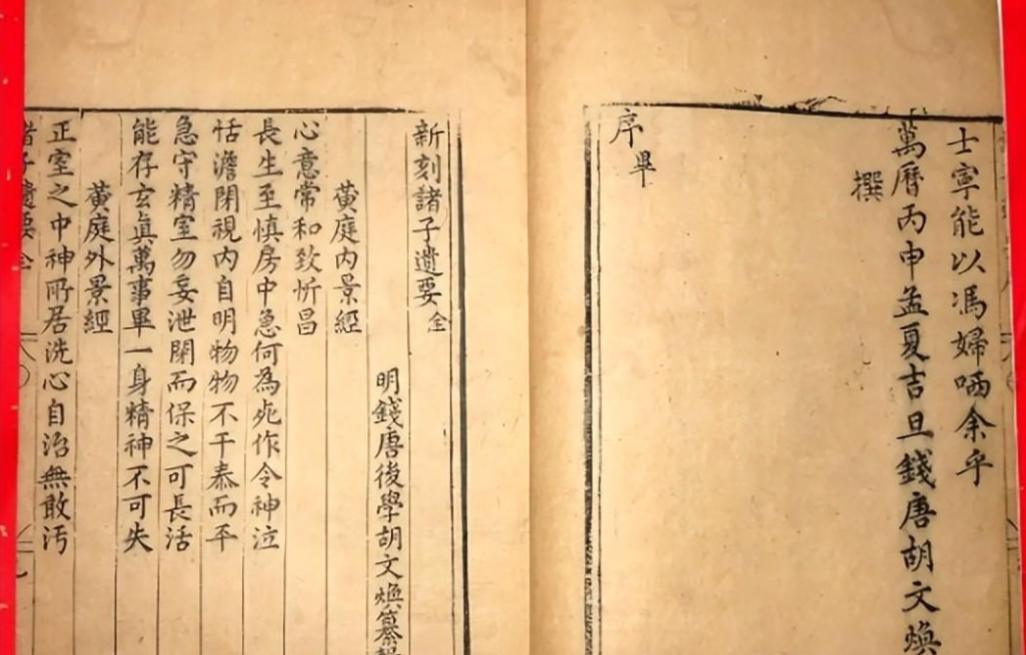 士寧能以馮婦哂余乎
萬曆丙申孟夏吉旦錢唐胡文煥
撰
序畢
新刻諸子遺要全
明錢唐後學胡文煥纂
黃庭内景經
心意常和致忻昌
長生至慎房中急何為死作令神泣
恬澹閉視内自明物物不干泰而平
急守精室勿妄泄閉而保之可長活
能存玄真萬事畢一身精神不可失
黃庭外景經
正室之中神所居洗心自治無敢汚
諸子遺要全